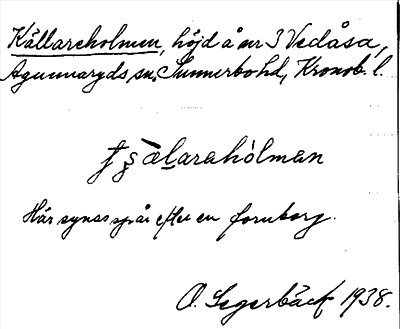 Källareholmen, höjd å nr 3 Vedåsa,
Agunnaryds sn, Sunnerbo hd, Kronob. l.
holman
Här synas spår efter en fornborg.
O. Segerbäck 1938.